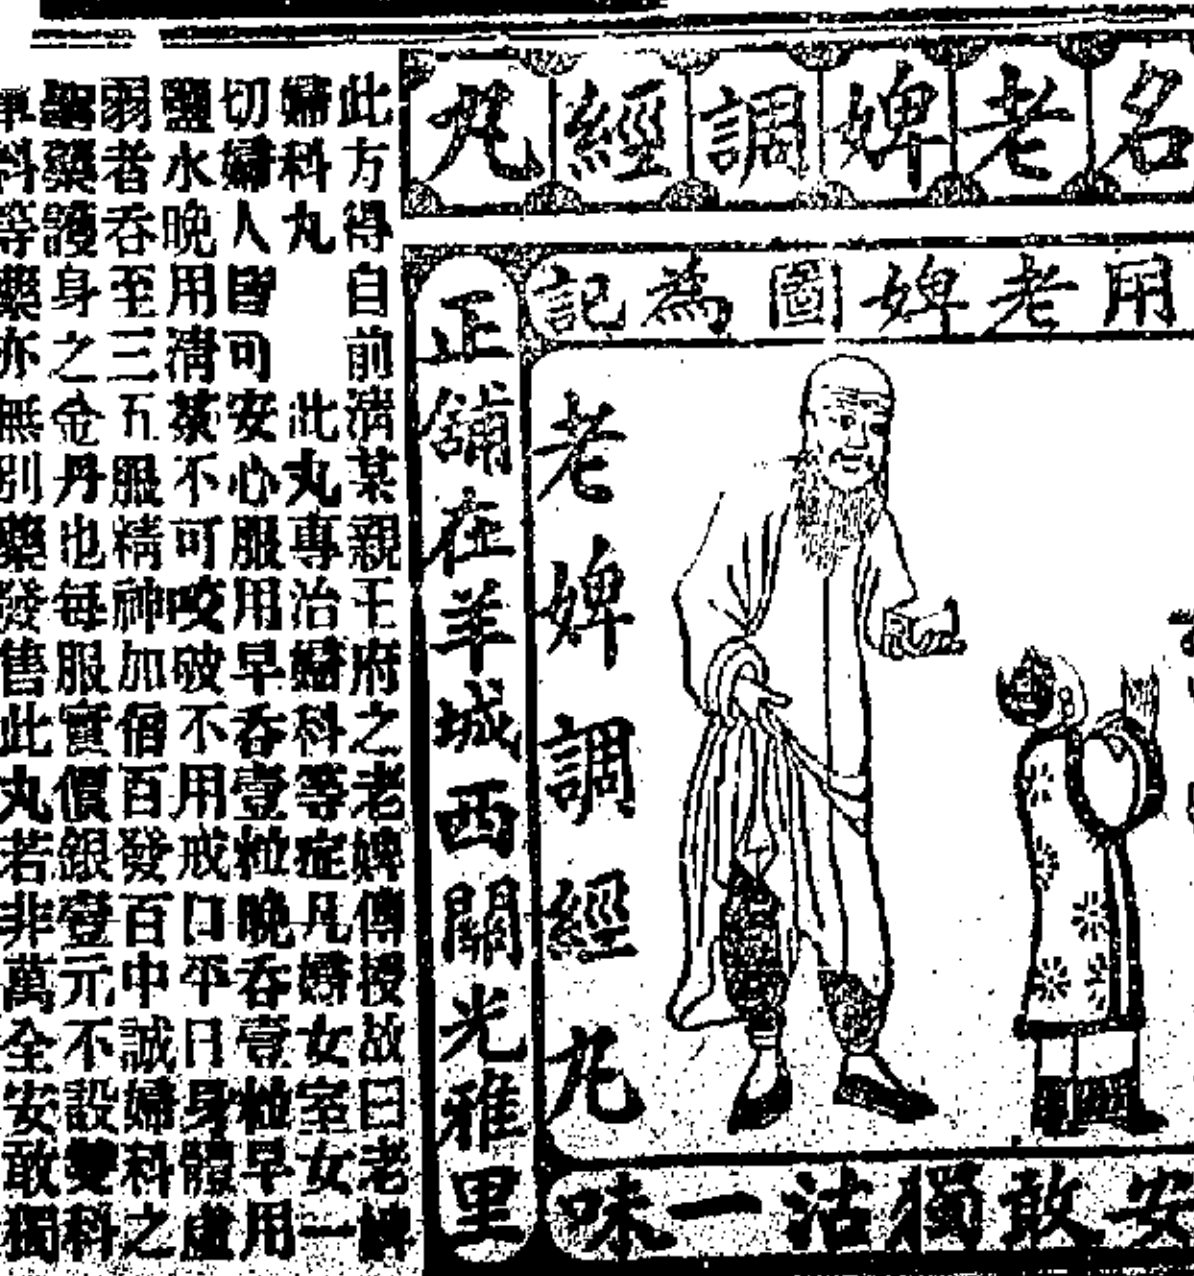 名老婢調經丸
用老婢圖為記
老婢調經丸
正舖在羊城西關光雅里
安敢獨沽一味
此方得自前清某親王府之老婢傳授故曰老婢
婦科丸 此丸專治婦科等症凡婦女室女一
切婦人皆可安心服用早吞壹粒晚吞壹粒早用
鹽水晚用清茶不可咬破不用戒口平日身體虛
弱者吞至三五服精神加倍百發百中誠婦科之
聖藥護身之金丹也每服實價銀壹元不設雙料
單料等藥亦無別藥發售此丸若非萬全安敢獨